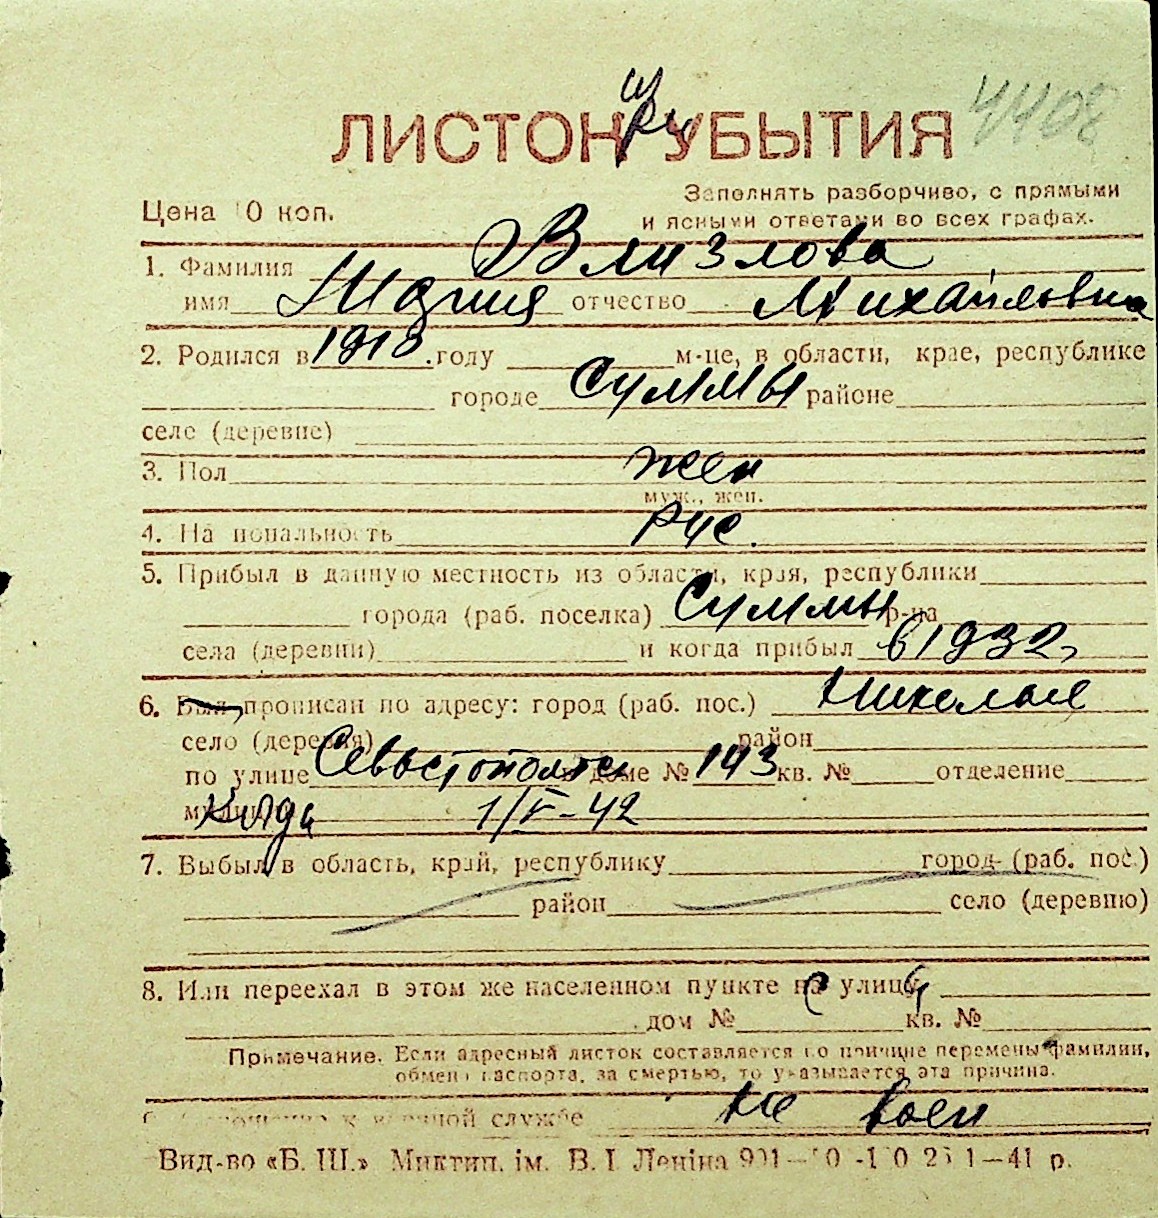 4408
ЛИСТОК УБЫТИЯ
Заполнять разборчиво, с прямыми
Цена 10 коп.
и ясными ответами во всех графах.
1. Фамилия Влизлова
имя Мария отчество Михайловна
2. Родился в 1918 году м-це, в области, крае, республике
городе Суммы районе
село (деревне)
3. Пол жен
муж., жен.
4. Национальность Рус.
5. Прибыл в данную местность из области, края, республики
города (раб. поселка) Суммы р-на
села (деревни) и когда прибыл в 1932
6. Был прописан по адресу: город (раб. пос.) Николаев
село (деревня) район
по улице Севастопольск в доме № 143 кв. № отделение
1/V-42
7. Выбыл в область, край, республику город (раб. пос.)
район село (деревню)
8. Или переехал в этом же населенном пункте на улицу
дом № кв. №
Примечание. Если адресный листок составляется по причине перемены фамилии,
обмена паспорта, за смертью, то указывается эта причина.
военной службе не воен
Вид-во «Б. Ш.» Миктип. ім. В. І Леніна 41 р.